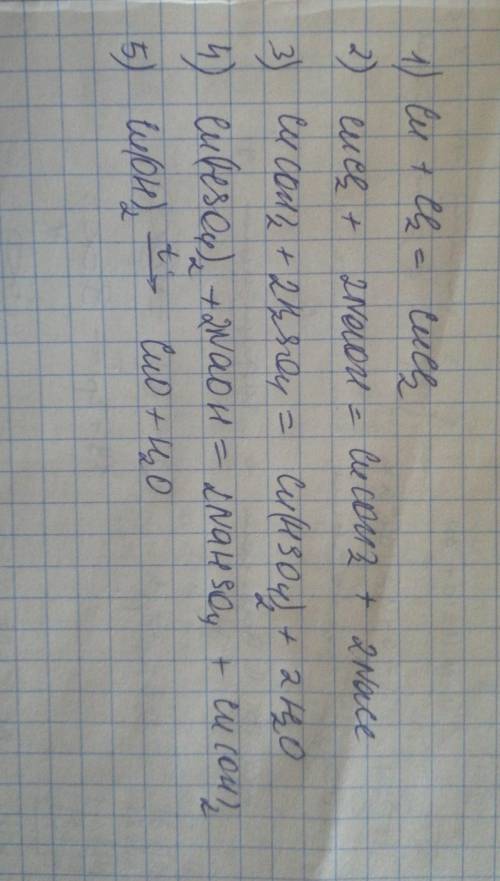 1) Cu + Cl₂ = CuCl₂
2) CuCl₂ + 2NaOH = Cu(OH)₂ + 2NaCl
3) Cu(OH)₂ + 2H₂SO₄ = Cu(HSO₄)₂ + 2H₂O
4) Cu(HSO₄)₂ + 2NaOH = 2NaHSO₄ + Cu(OH)₂
5) Cu(OH)₂ t→ CuO + H₂O